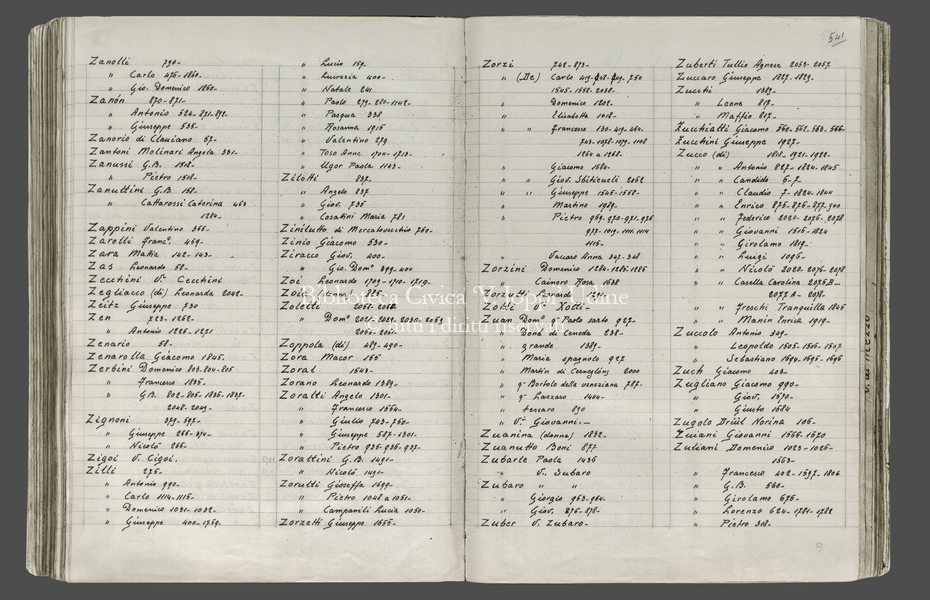 541
Zanolli 790-
" Carlo 475-1860-
" Gio. Domenico 1860-
Zanón 870-871-
" Antonio 524-871-892-
" Giuseppe 535-
Zanorio di Clauiano 57-
Zantoni Molinari Angela 331-
Zanussi G.B. 1518-
" Pietro 1518-
Zanuttini G.B. 158-
" Cattarossi Caterina 463-
1284-
Zappini Valentino 366-
Zarolli Franc.º 459-
Zara Mattia 142-143-
Zas Leonardo 58-
Zecchini V. Cecchini
Zegliacco (di) Leonarda 2042-
Zeitz Giuseppe 730
Zen 723-1262-
" Antonio 1226-1271
Zenario 58-
Zenarolla Giacomo 1845-
Zerbini Domenico 803-804-805
" Francesco 1835-
" G.B. 802-805-1836-1837-
2048-2049-
Zignoni 879-597-
" Giuseppe
" Nicolò 266-
Zigoi V. Cigoi.
Zilli 275-
" Antonio 990-
" Carlo 1114-1115-
" Domenico 1031-1032-
" Giuseppe 400-1759-
" Lucia 159-
" Lucrezia 400-
" Natale 241
" Paolo 279-281-1142-
" Pasqua 338
" Rosanna 1915
" Valentino 279
" Toso Anna 1704-1713-
" Ugor Paola 1143-
Zilotti 837-
" Angelo 837
" Giov. 735
" Cosattini Maria 781
Zinilutto di Mercatovecchio 760-
Zinio Giacomo 530-
Ziracco Giov. 400-
" Gio. Dom.º 399-400
Zoi Leonardo 1709-1710-1719-
Zoletti 2051-2052-
" Dom.º
Zoppola (di) 489-490-
Zora Macor 165
Zorat 1543-
Zorano Leonardo 1389-
Zoratti Angelo 1301-
" Francesco 1564-
" Giulio 703-750-
" Giuseppe 587-1301-
" Pietro 935-936-937-
Zorattini G.B. 1491-
" Nicolò 1491-
Zorutti Gioseffa 1699-
" Pietro 1048 a 1051-
" Campanili Lucia 1050-
Zorzetti Giuseppe 1655-
Zorzi 742-873-
" (De) Carlo 750
1545-1558-2038-
" Domenico 1202-
" Elisabetta 1018-
" " Francesco 130-419-464-
743-1078-1079-1108
1264 a 1268-
" Giacomo 1684-
" " Giov. 2062
" " Giuseppe 1545-1558-
" Martino 1989-
" Pietro 969-970-971-976
977-1019-1111-1114
1115-
" Vaccaro Anna 347-348
Zorzini Domenico 1284-1285-1286
" Cainero Rosa 1638
Zorzutti
Zotti V. Xotti-
Zuan Dom.º q.m Paolo sarto 927-
" Donà di Ceneda 238-
" grande 1389-
" Maria spagnolo 927
" Martin di Cerneglòns 2000
" q.m Bortolo della veneziana 787-
" q.m Lazzaro 1404-
" tessaro 890
" V. Giovanni.-
Zuanina (donna) 1832-
Zuanutto Boni 877
Zubarle Paola 1436
" V. Subaro
Zubaro " "
" Giorgio 963-964-
" Giov. 876-878-
Zuber V. Zubaro-
Zuberti Tullio Agnese 2053-2057-
Zuccaro Giuseppe 1827-1829-
Zucchi 1389-
" Leone 817-
" Maffio 817-
Zucchiatti Giacomo 560-561-563-566-
Zucchini Giuseppe 1927-
Zucco (di) 1818-1921-1922-
" " Antonio 827-1824-1845
" " Candido 6-7-
" " Claudio 7-1824-1844
" " Enrico 875-876-877-900
" " Federico 2024-2076-2078
" " Giovanni 1516-1824
" " Girolamo 1819-
" " Luigi 1096-
" " Nicolò 2022-2076-2078
" " Casella Carolina 2076B-
2077A-2078-
" " Freschi Tranquilla 1845
" " Manin Enrica 1919-
Zuccolo Antonio 349-
" Leopoldo 1505-1506-1507
" Sebastiano 1694-1695-1696
Zuch Giacomo 403-
Zugliano Giacomo 990-
" Giov. 1570-
" Giusto 1684
Zugolo Drüil Norina 106-
Zuiani Giovanni 1566-1570
Zuliani Domenico 1023-1026-
1563-
" Francesco 402-1597-1806
" G.B. 560-
" Girolamo 676-
" Lorenzo 624-1781-1782
" Pietro 318-
Biblioteca Civica V. Joppi Udine
© tutti i diritti riservati